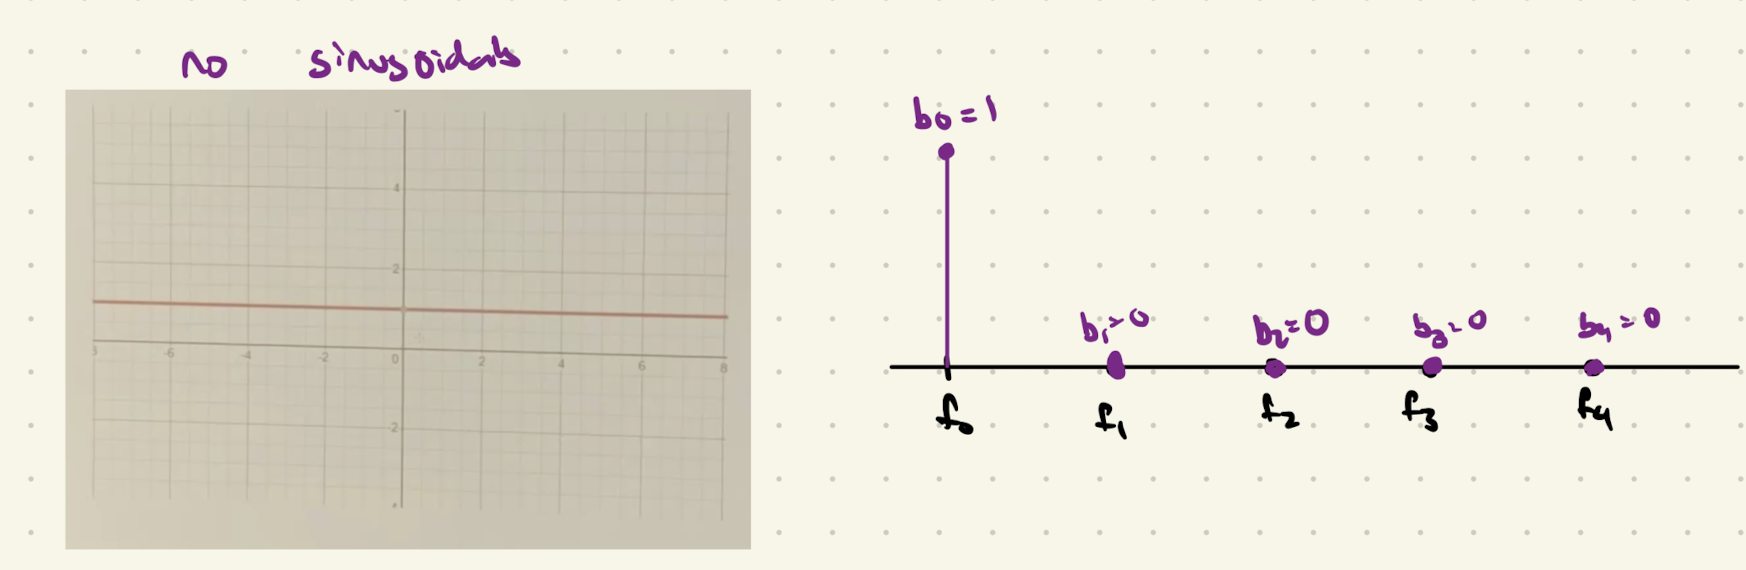 no sinusoidals
b0=1
4
2
-6
-4
-2
0
2
4
6
8
-2
b1=0
b2=0
b3=0
b4=0
f0
f1
f2
f3
f4